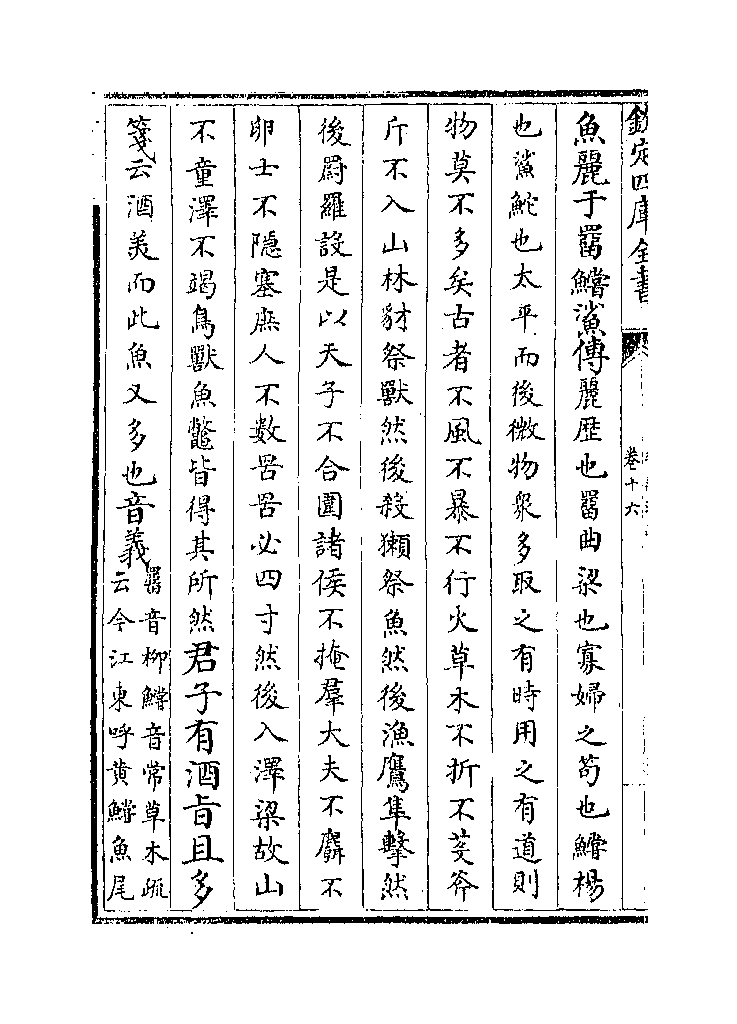 欽定四庫全書
卷十六
魚麗于罶鱨鯊傳麗歴也罶曲梁也寡婦之笱也鱨楊
也鯊鮀也太平而後微物衆多取之有時用之有道則
物莫不多矣古者不風不暴不行火草木不折不芟斧
斤不入山林豺祭獸然後殺獺祭魚然後漁鷹隼擊然
後罻羅設是以天子不合圍諸侯不掩羣大夫不麛不
卵士不隠塞庶人不數罟罟必四寸然後入澤梁故山
不童澤不竭鳥獸魚鼈皆得其所然君子有酒㫖且多
箋云酒美而此魚又多也音義
罶音柳鱨音常草木疏
云今江東呼黄鱨魚尾